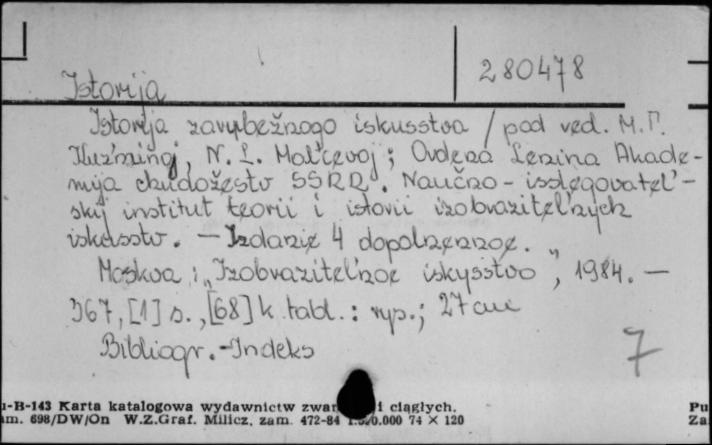 280478
Istorija
Istorija zarubežnogo iskusstva / pod red. M.T.
Kuz'minoj, N. L. Mal'cevoj; Ordena Lenina Akade-
mija chudožestv SSRR. Naučno-issledovatel'-
skij institut teorii i istorii izobrazitel'nych
iskusstv. — Izdanie 4 dopolnennoe.
Moskva : "Izobrazitel'noe iskusstvo", 1984. —
367, [1] s., [68] k. tabl. : rys.; 27 cm
Bibliogr. - Indeks
7
-B-143 Karta katalogowa wydawnictw i ciągłych. Pu
am. 698/DW/On W.Z.Graf. Milicz, zam. 472-84 000 74 × 120 Za